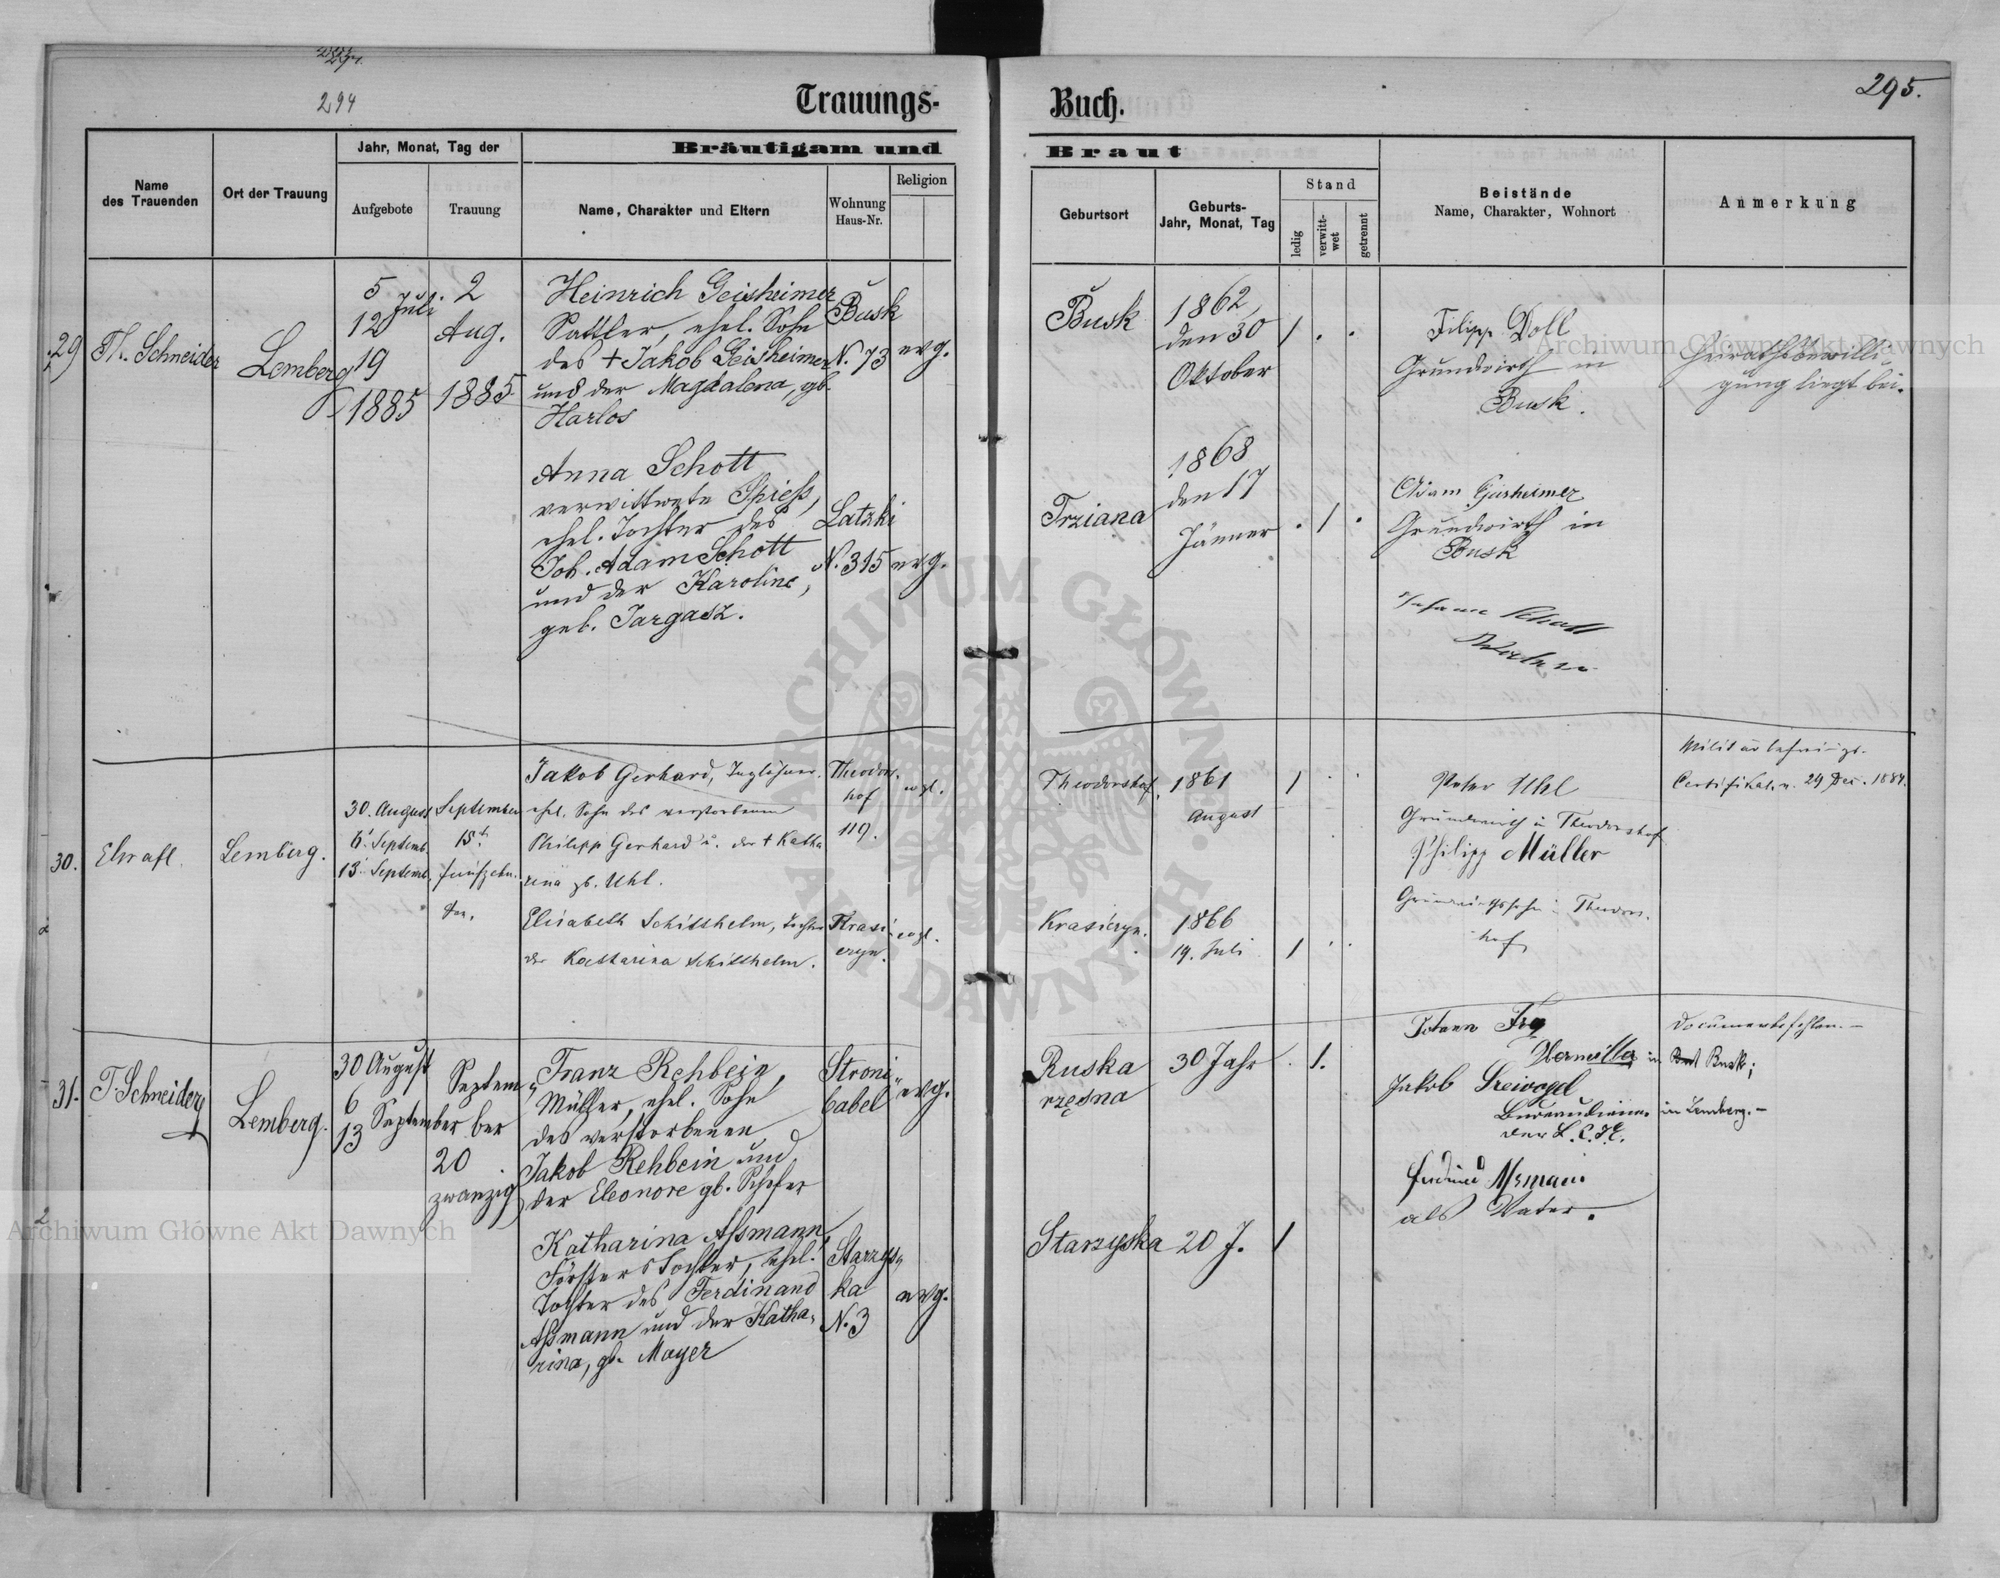 294
Trauungs-
Buch.
295.
Name
des Trauenden
Ort der Trauung
Jahr, Monat, Tag der
Aufgebote
Trauung
Bräutigam und
Name, Charakter und Eltern
Wohnung
Haus-Nr.
Religion
Braut
Geburtsort
Geburts-
Jahr, Monat, Tag
Stand
ledig
verwitt-
wet
getrennt
Beistände
Name, Charakter, Wohnort
Anmerkung
29
Th. Schneider
Lemberg
5
12 Juli
19
1885
2
Aug.
1885
Heinrich Geisheimer
Sattler, ehel. Sohn
des + Jakob Geisheimer
und der Magdalena, gb.
Harlos
Busk
N. 73
evg.
Busk
1862
den 30
Oktober
Filipp Doll
Grundwirth in
Busk.
Heirathsbewilli
gung liegt bei.
Anna Schott
verwittwete Spiess,
ehel. Tochter des
Joh. Adam Schott
und der Karoline,
geb. Targasz.
Latzki
N. 315
evg.
Trziana
1868
den 17
Jänner
Adam
Grundwirth in
Busk
30.
Lemberg.
30. August
6. Septemb.
13. Septemb.
September
15t
fünfzehn.
ten.
Jakob Gerhard, Taglöhner.
ehel. Sohn des verstorbenen
Philipp Gerhard u. der + Katha
rina gb. Uhl.
Theodors-
hof
119.
evgl.
Theodorshof.
1861
August
Peter Uhl
Grundwirth in Theodorshof
Philipp Müller
Theodors-
hof
Militärbefreiungs-
Certifikat v. 29 Dec. 1884.
Elisabeth Schitthelm, Tochter
der Katharina Schitthelm.
Krasi-
czyn.
evgl.
Krasiczyn.
1866
19. Juli
31.
T. Schneider
Lemberg.
30 August
6
13 September
Septem
ber
20
zwanzig
Franz Rehbein,
Müller, ehel. Sohn
des verstorbenen
Jakob Rehbein und
der Eleonore gb. Schefer
Stroni-
babel
evg.
Ruska
rzęsna
30 Jahr
Johann
in Busk;
Jakob Dreivogel
Bureaudiener in Lemberg.-
Documente fehlen.-
Katharina Aßmann,
Försters Tochter, ehel.
Tochter des Ferdinand
Aßmann und der Katha-
rina, gb. Mayer
Starzys-
ka
N. 3
evg.
Starzyska
20 J.
als Vater.
Archiwum Główne Akt Dawnych
Archiwum Główne Akt Dawnych
ARCHIWUM GŁÓWNE AKT DAWNYCH